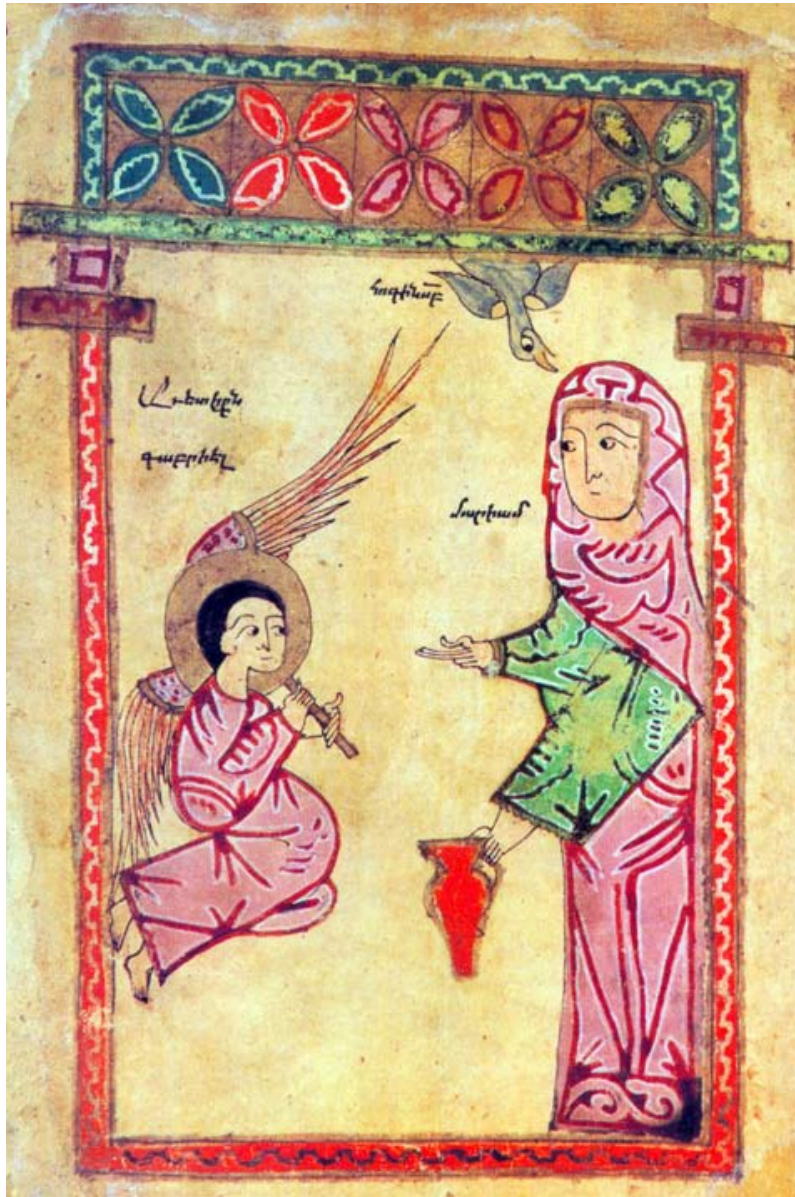 Հոգին սբ
Աւետիքն
գաբրիէլ
մարիամ